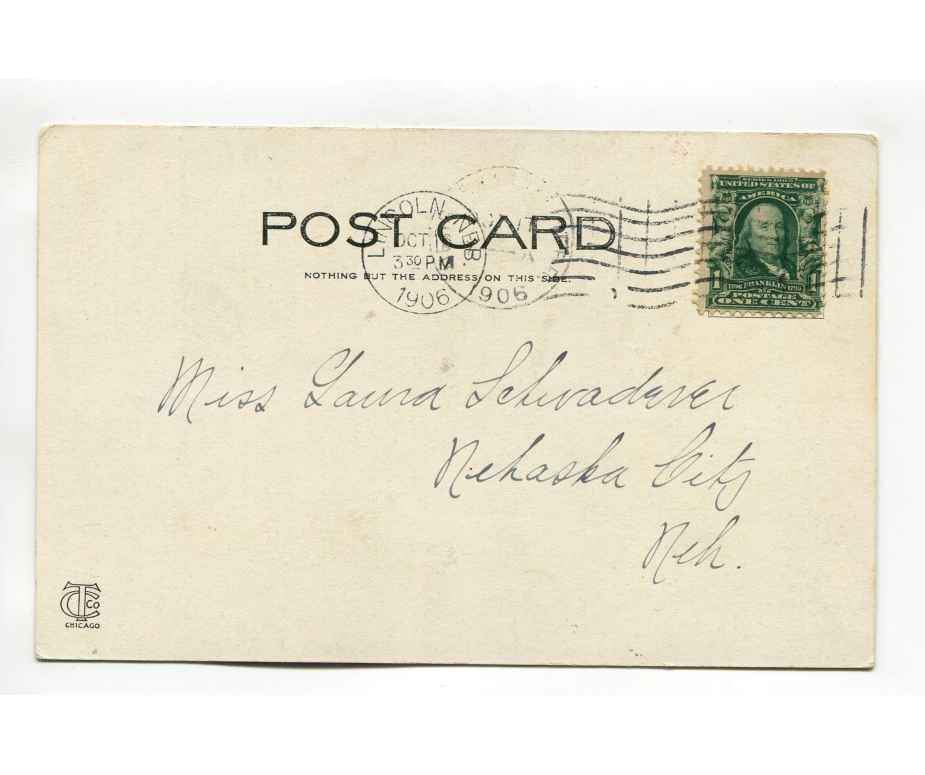 POST CARD
NOTHING BUT THE ADDRESS ON THIS SIDE.
LINCOLN, NEB.
OCT
3 30 PM
1906
906
SERIES 1902
UNITED STATES OF
AMERICA
1 1
1706 FRANKLIN 1790
POSTAGE
ONE CENT
Miss Laura Schwaderer
Nehaska City
Neh.
CTCo
CHICAGO